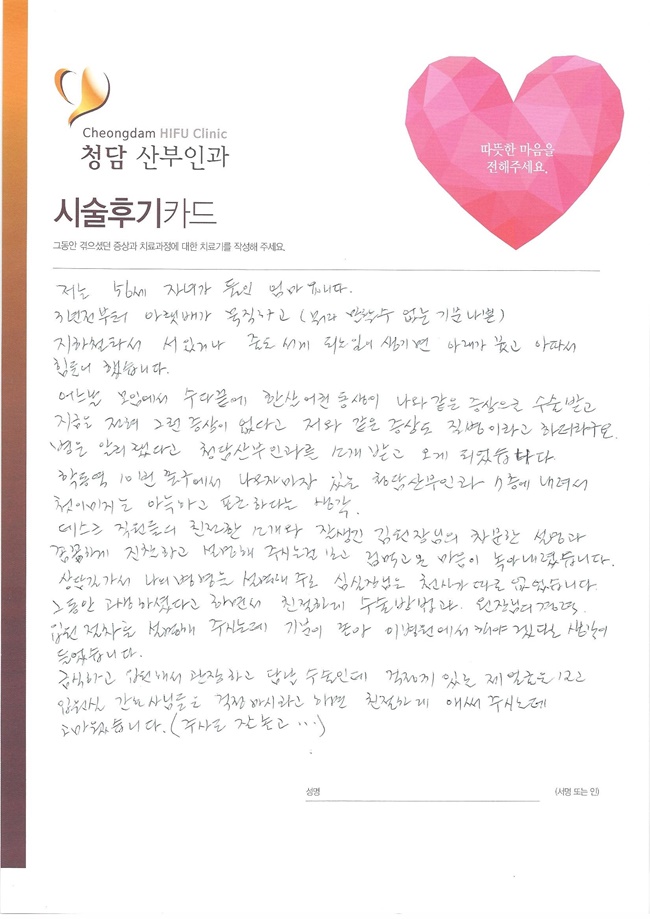 Cheongdam HIFU Clinic
청담 산부인과
따뜻한 마음을
전해주세요.
시술후기카드
그동안 겪으셨던 증상과 치료과정에 대한 치료기를 작성해 주세요.
저는 56세 자녀가 둘인 엄마입니다.
3년전부터 아랫배가 묵직하고 (뭐라 말할수 없는 기분나쁨)
지하철타서 서있거나 중도 서게 되는일이 생기면 아래가 붓고 아파서
힘들어 했습니다.
어느날 모임에서 수다끝에 한산 어린 동생이 나와같은 증상으로 수술받고
지금은 전혀 그런증상이 없다고 저와 같은 증상도 질병이라고 하더라구요.
병을 알리랬다고 청담산부인과를 소개 받고 오게 되었습니다
학동역 10번 출구에서 나오자마자 있는 청담산부인과 4층에 내려서
첫이미지는 아늑하고 포근하다는 생각.
데스크 직원들의 친절한 소개와 잘생긴 김원장님의 차분한 설명과
꼼꼼하게 진찰하고 설명해 주시는걸 보고 겁먹고온 마음이 녹아내렸습니다.
상담실가서 나의병명을 설명해 주는 심실장님은 천사가 따로 없었습니다.
그동안 고생하셨다고 하면서 친절하게 수술방법과 원장님의경력,
입원 절차를 설명해 주시는데 기분이 좋아 이병원에서 해야 겠단 생각이
들었습니다.
금식하고 입원해서 관장하고 담날 수술인데 걱정하게 있는 제 얼굴을 보고
입원실 간호사님들은 걱정마시라고 하면 친절하게 애써 주시는데
고마웠습니다. (주사도 잘 놓고 ...)
성명
(서명 또는 인)